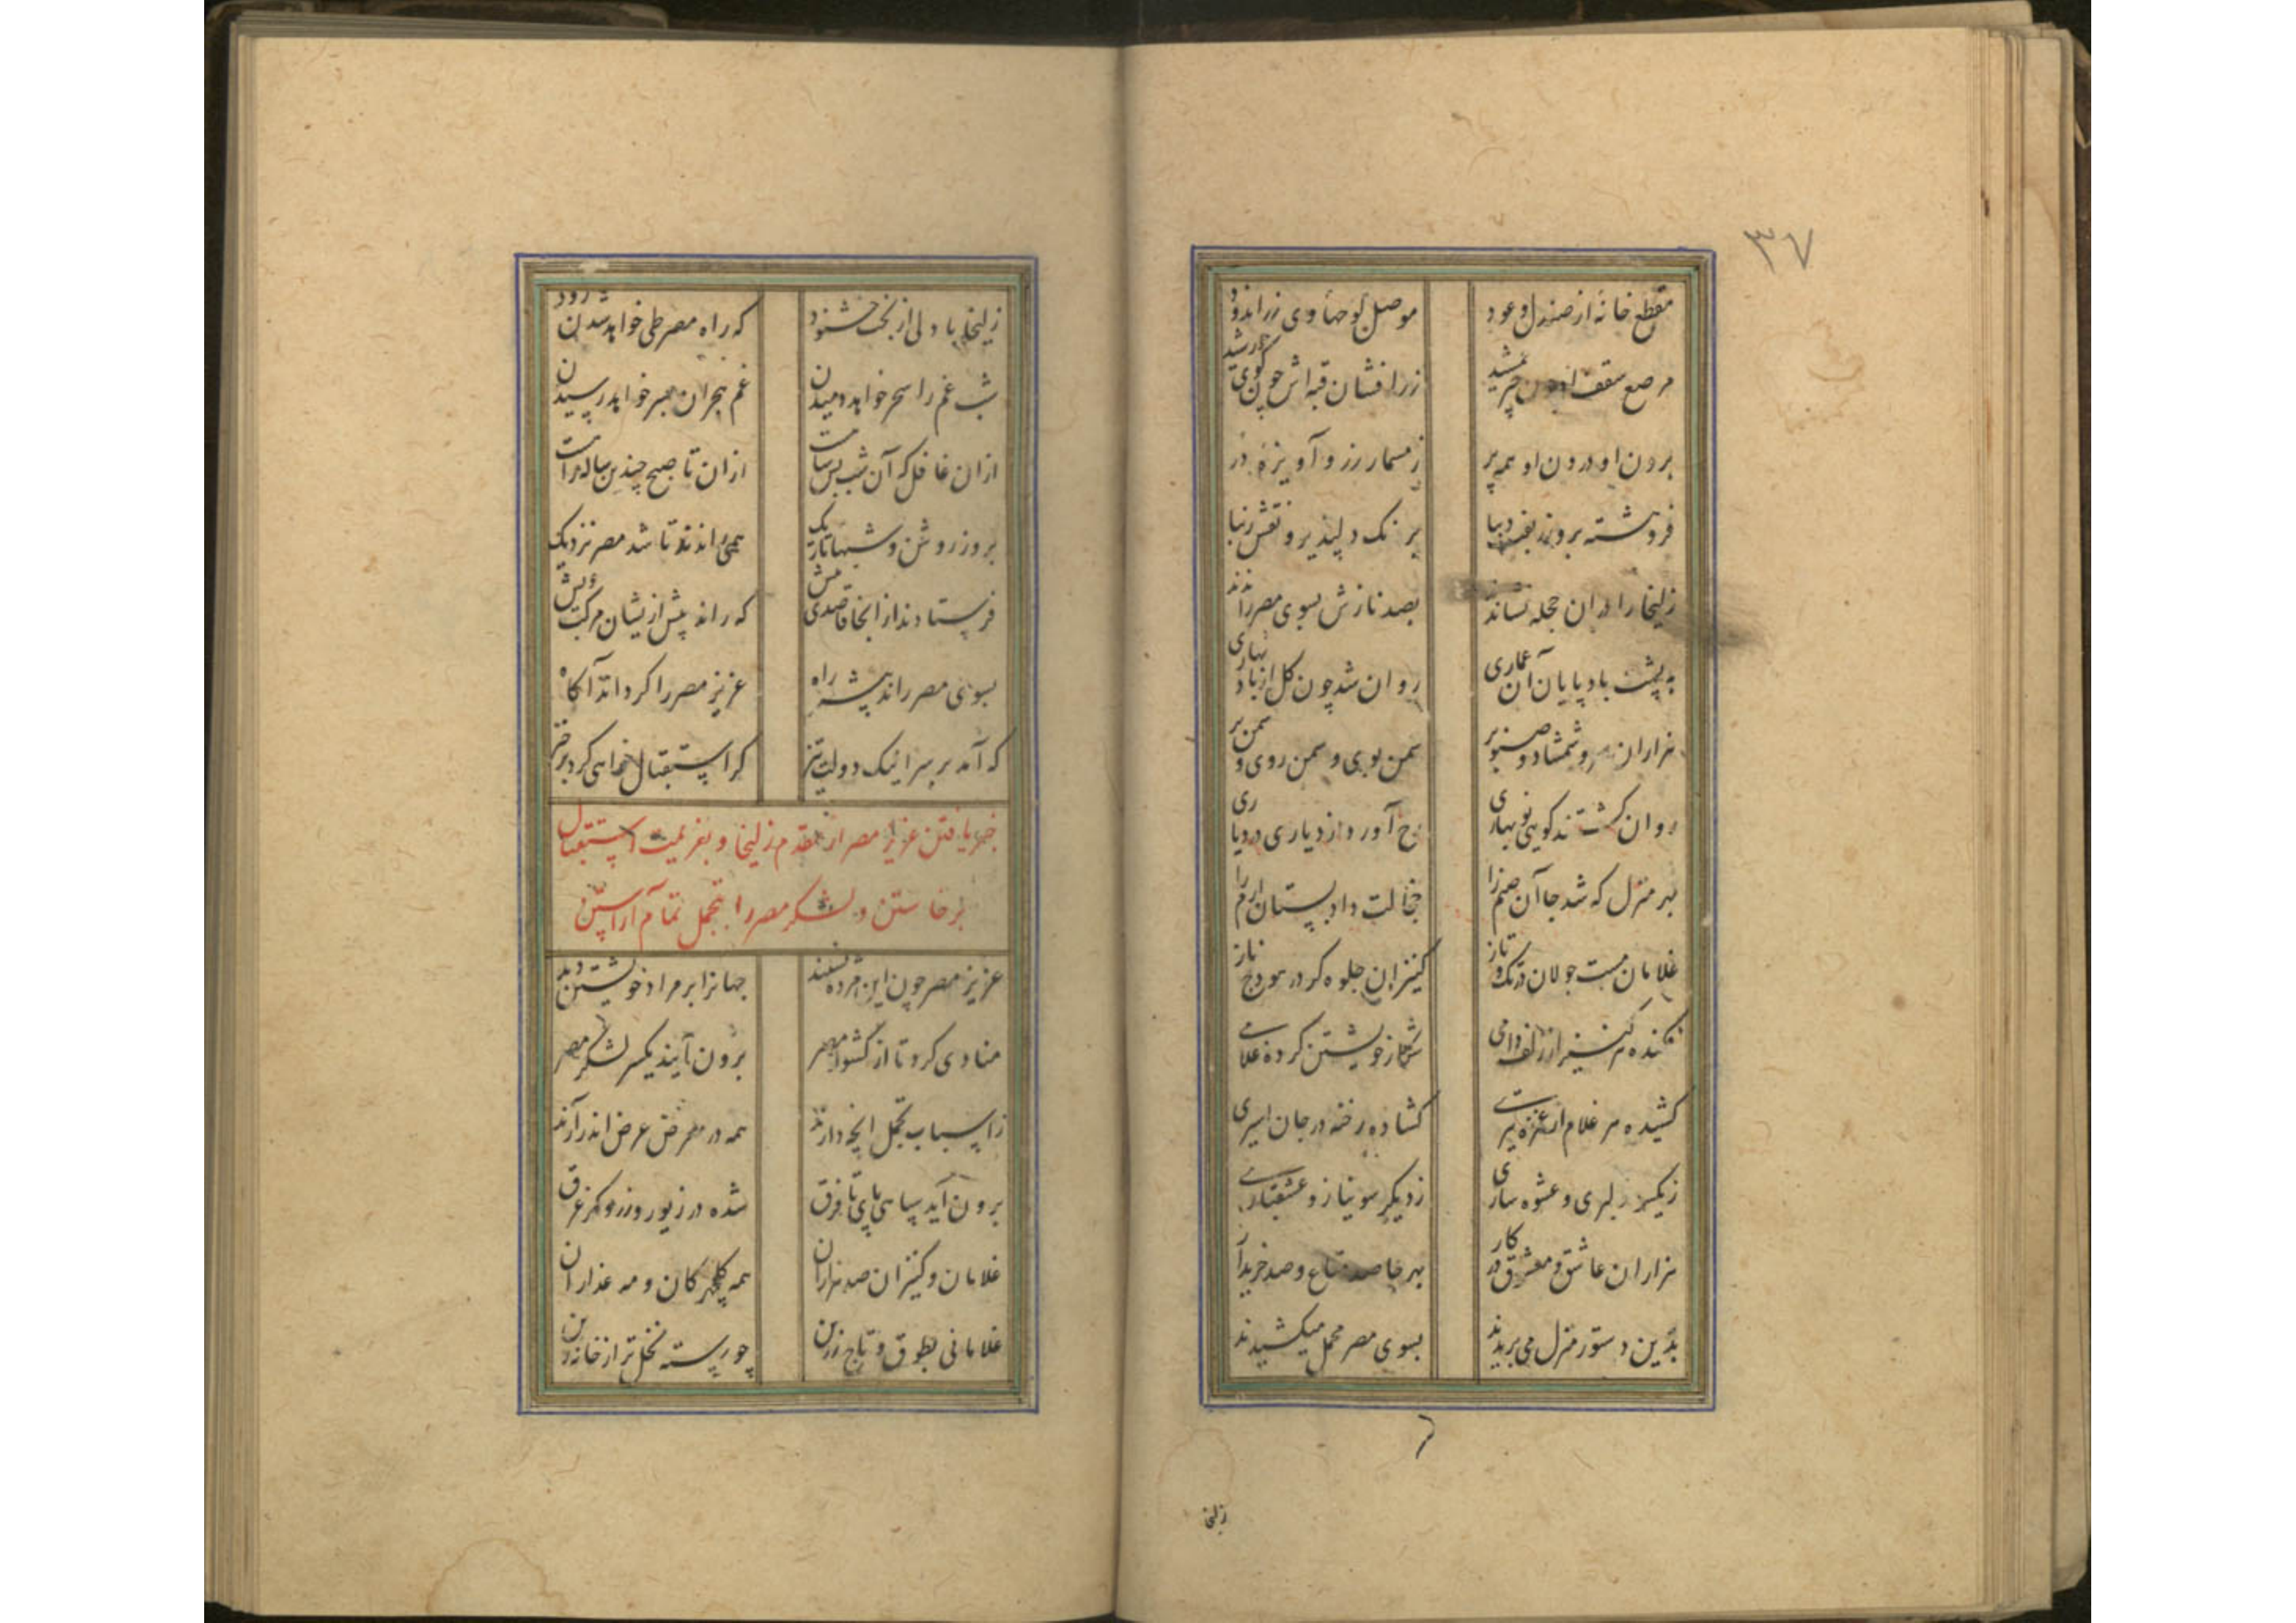 ۳۷
مقطع خانهٔ از صندل و عود موصل لوحهاء وی زراندود
مرصع سقف او چون چتر جمشید زرافشان قبه اش چون گوی خورشید
برون او درون او همه پر ز مسمار زر و آویزهٔ در
فروهشته برو زربفت دیبا برنگ دلپذیر و نقش زیبا
زلیخا را دران حجله نشاندند بصد نازش بسوی مصر راندند
به پشت بادپایان آن عماری روان شد چون گل از باد بهاری
هزاران سرو و شمشاد و صنوبر سمن بوی و سمن روی و سمن بر
روان گشتند گویی نوبهاری رخ آورد از دیاری در دیاری
بهر منزل که شد جا آن صنم را خجالت داد بستان ارم را
غلامان مست جولان در تک و تاز کنیزان جلوه گر در هودج ناز
فکنده هر کنیز از زلف دامی شکار خویشتن کرده غلامے
کشیده هر غلام از غمزه تیرے گشاده رخنه در جان اسیری
ز یکسو دلبری و عشوه سازی ز دیگر سو نیاز و عشقبازے
هزاران عاشق و معشوق در کار بهر جا صد متاع و صد خریدار
بدین دستور منزل می بریدند بسوی مصر محمل میکشیدند
زلیخا
زلیخا با دلی از بخت خشنود که راه مصر طی خواهد شدن زود
شب غم را سحر خواهد دمیدن غم هجران بسر خواهد رسیدن
ازان غافل که آن شب بس سیاهست ازان تا صبح چندین ساله راهست
بروز روشن و شبهای تاریک همی راندند تا شد مصر نزدیک
فرستادند از آنجا قاصدی پیش که راند پیش ازیشان مرکب خویش
بسوی مصر راند پیشتر راه عزیز مصر را گرداند آگاه
که آمد بر سر اینک دولت تیز گر استقبال خواهی کرد برخیز
خبر یافتن عزیز مصر از مقدم زلیخا و بعزیمت استقبال
برخاستن و لشکر مصر را بتجمل تمام آراستن
عزیز مصر چون این مژده بشنید جهانرا بر مراد خویشتن دید
منادی کرد تا از کشور مصر برون آیند یکسر لشکر مصر
ز اسباب تجمل آنچه دارند همه در معرض عرض اندر آرند
برون آید سپاهی پای تا فرق شده در زیور و زر و گهر غرق
غلامان و کنیزان صد هزاران همه گلچهرگان و مه عذاران
غلامانی بطوق و تاج زرین چو رسته نخل تر از خانهٔ زین